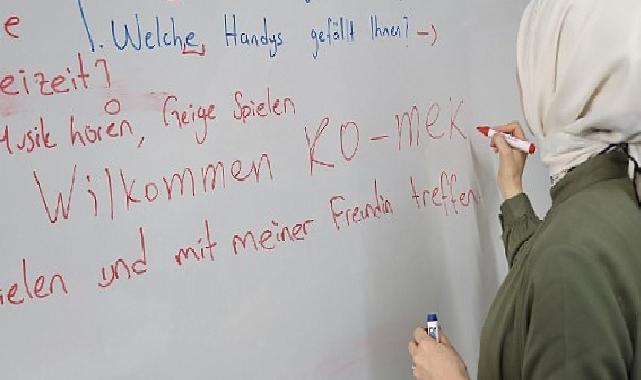 e
1. Welche Handys gefällt Ihnen? →
eizeit?
Musik hören, Geige Spielen
Wilkommen KO-mek
ielen und mit meiner Freundin treffen.